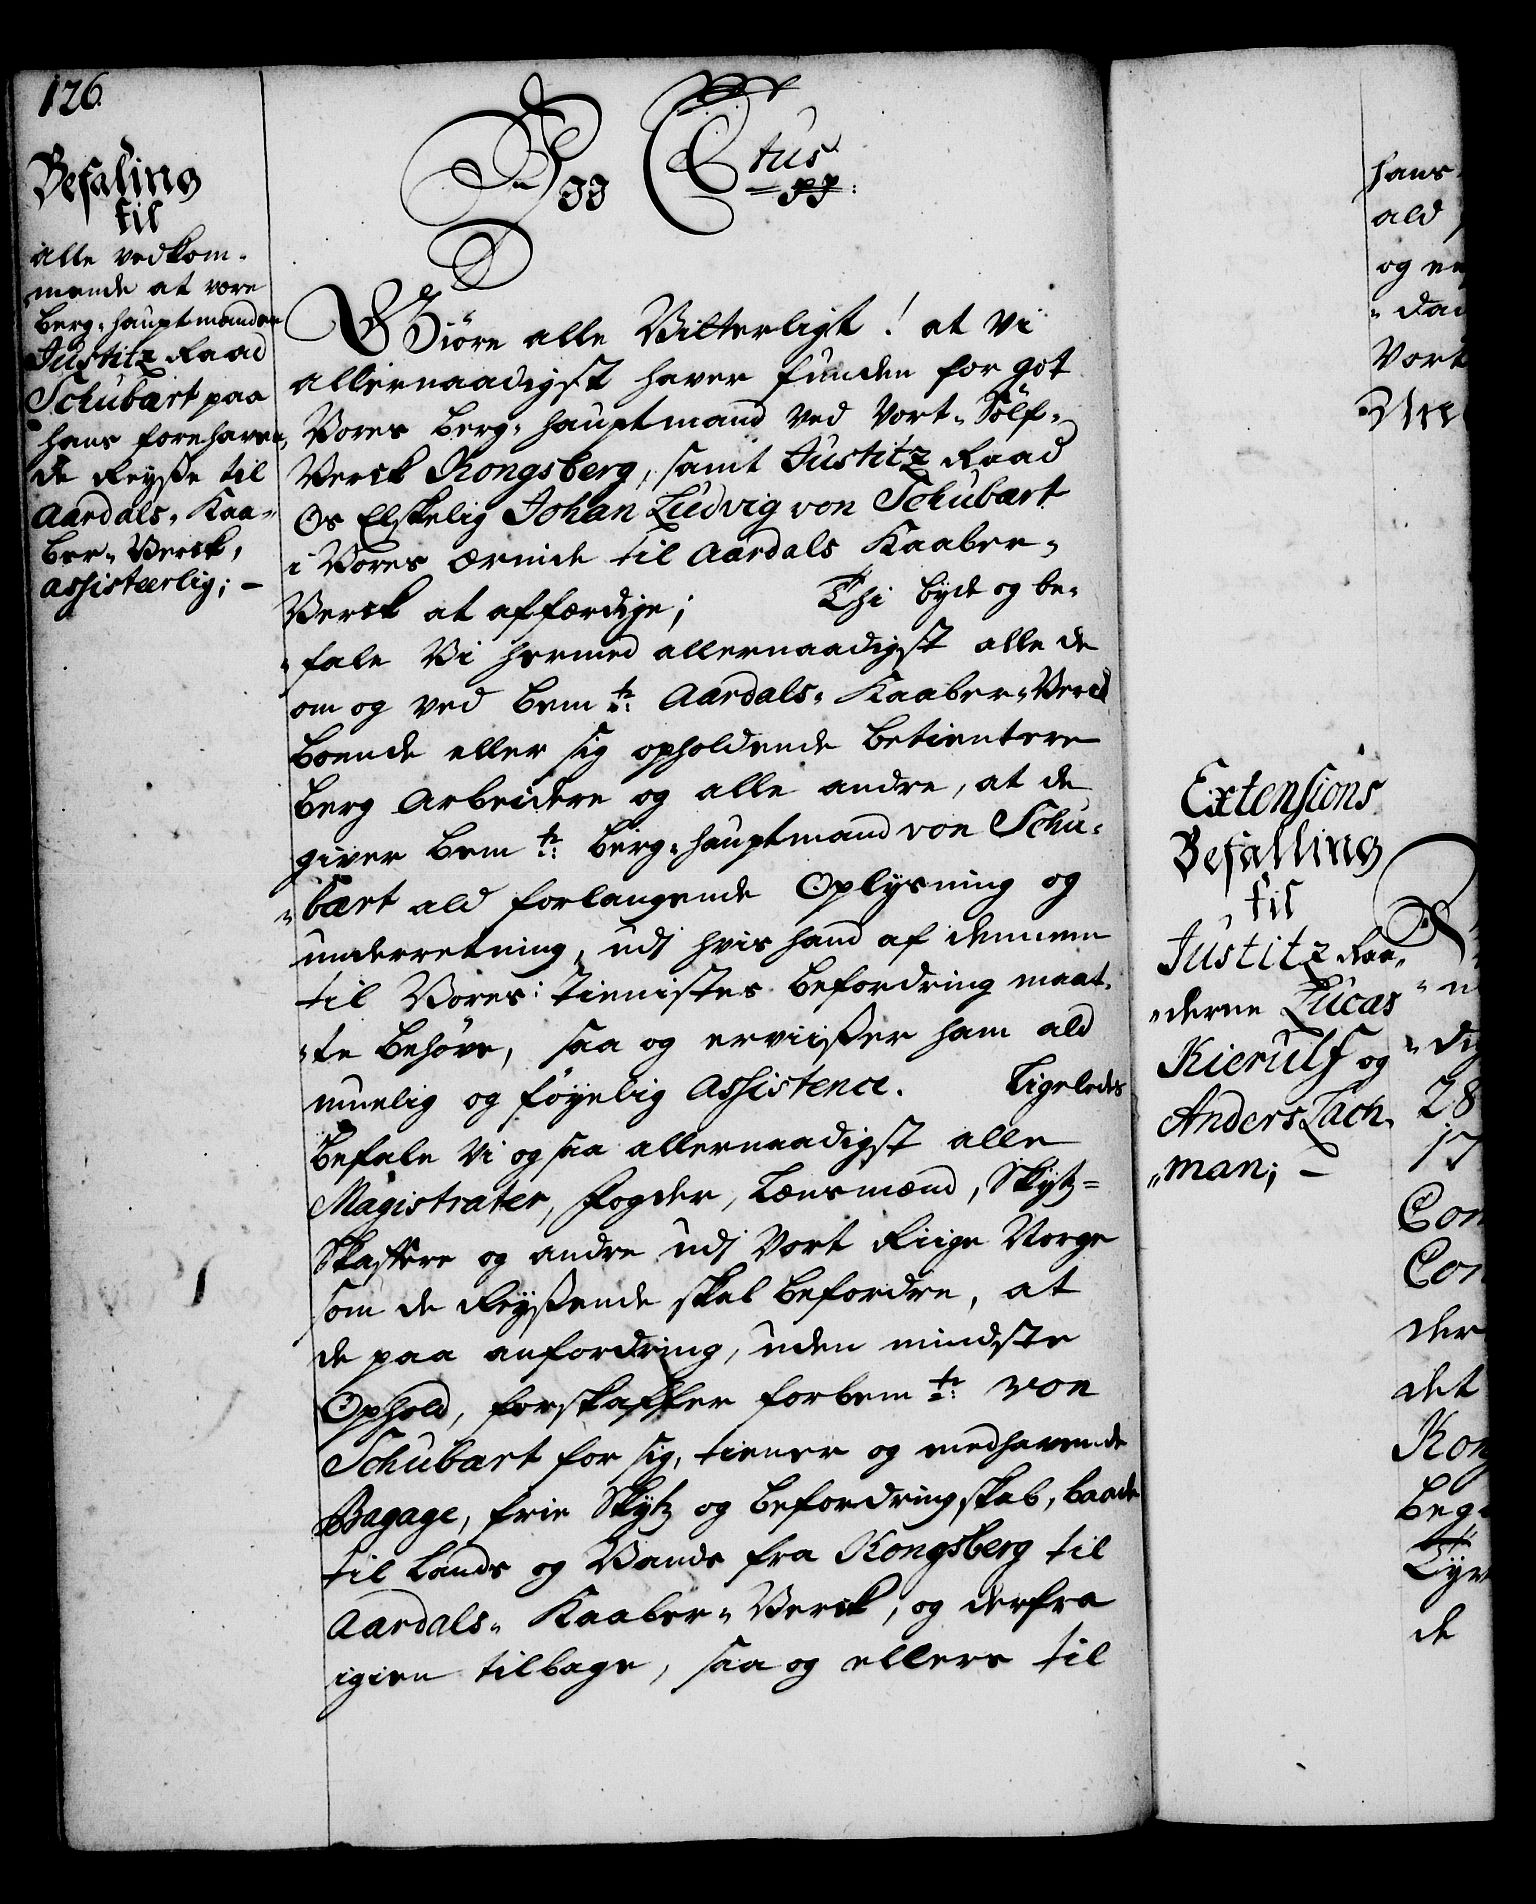 126.
Befaling
til
alle vedkom-
mende at være
Berg-hauptmanden
Justitz Raad
Schubart paa
hans forehaven-
de Reyße til
Aardals-Kaa-
ber-Verck,
assisteerlig; -
Ctus
pp:
Giøre alle Vitterligt! at Vi
allernaadigst haver funden for got
Vores Berg-hauptmand ved Vort Sölf-
Verck Kongsberg, samt Justitz Raad
Os Elskelig Johan Ludvig von Schubart
i Vores Ærinde til Aardals Kaaber-
Verck at affærdige; Thi byde og be-
-fale Vi hermed allernaadigst alle de
om og ved bem te: Aardals-Kaaber-Verck
boende eller sig opholdende Betientere
Berg Arbeidere og alle andre, at de
giver bem te: Berg-hauptmand von Schu-
-bart ald forlangende Oplysning og
underretning, udi hvis hand af dennem
til Vores Tienistes befordring maat-
-te behøve, saa og erviißer ham ald
muelig og føyelig Assistence. Ligeledes
Befale Vi og saa allernaadigst alle
Magistrater, Fogder, Lænsmænd, Skytz-
Skaffere og andre udi Vort Riige Norge
som de Reyßende skal befordre, at
de paa anfordring, uden mindste
Ophold, forskaffer forbem te: von
Schubart for sig, tiener og medhavende
Bagage, frie Skytz og befordringskab, baade
til Lands og Vands fra Kongsberg til
Aardals-Kaaber-Verck, og derfra
igien tilbage, saa og ellers til
hans
ald
og
Vort
Extensions
Befalling
til
Justitz Raa-
-derne Lucas
Kierulf og
Anders Lach-
-man; -
28
17
Con
Con
der
det
Kon
beg
de